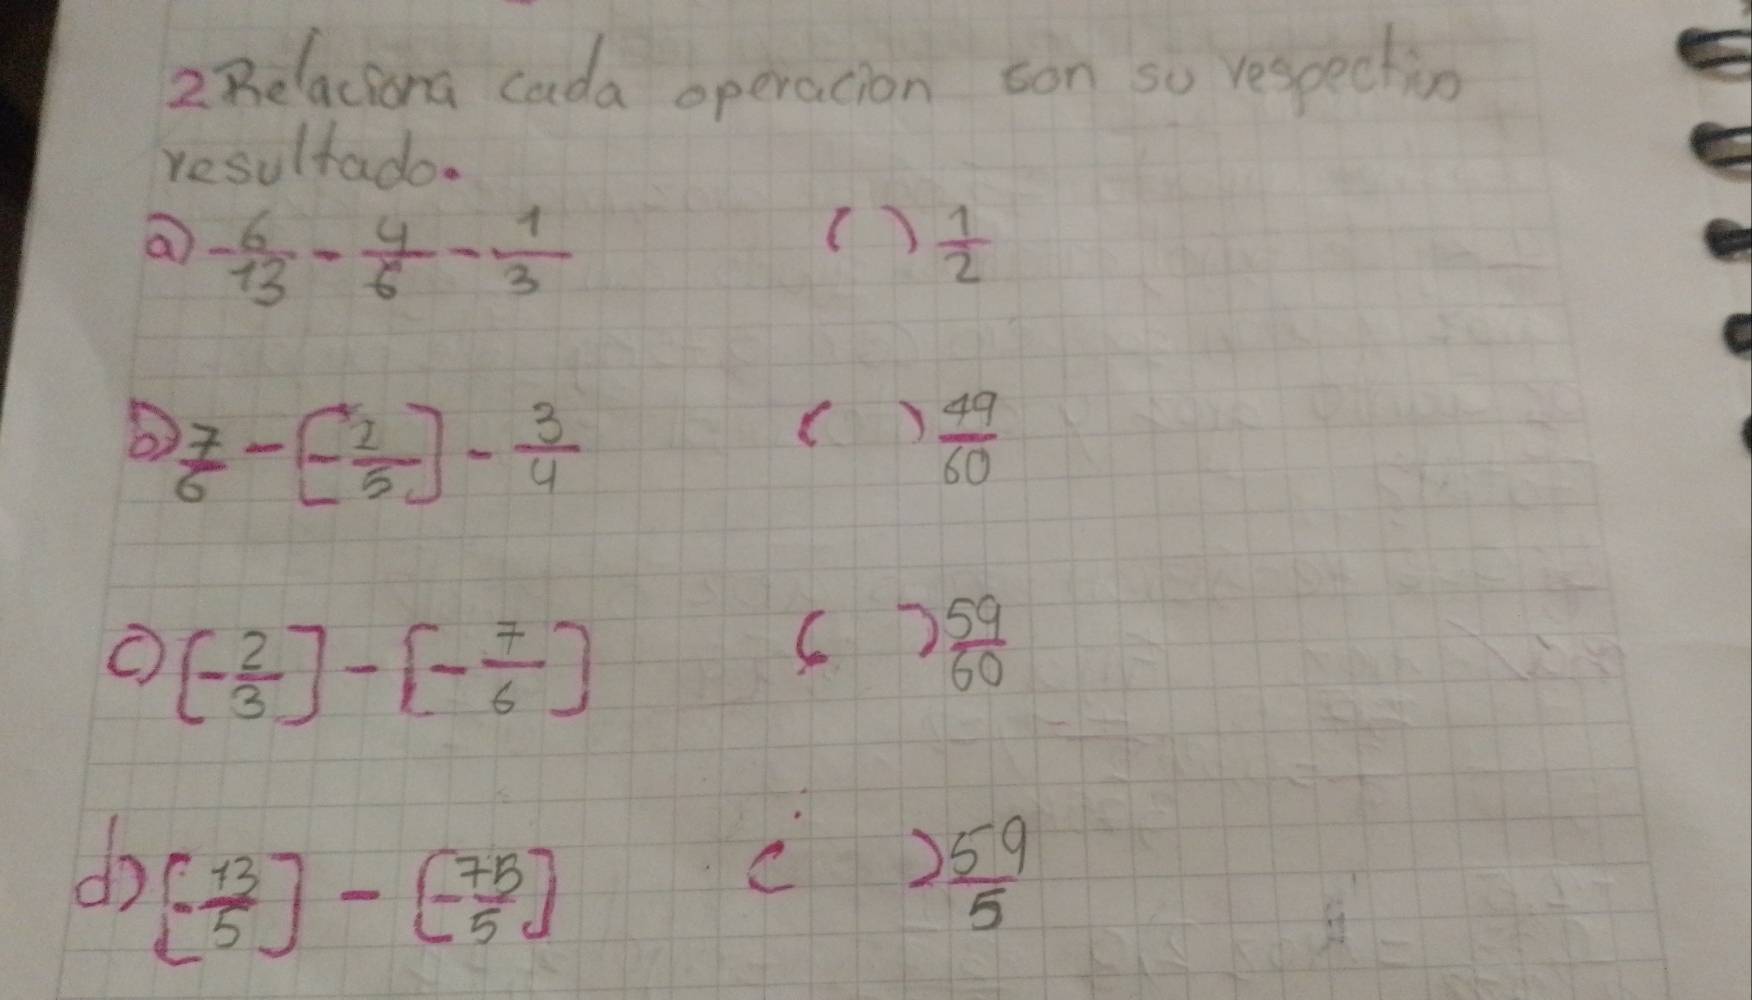 2 Relaciona cada operacion son su respectivo
resultado.
a) -6/13 - 4/6 - 1/3 ( ) 1/2
b) 7/6 - [-2/5] - 3/4 ( ) 49/60
c) [-2/3] - [-7/6] ( ) 59/60
d) [-13/5] - [-75/5] ( ) 59/5